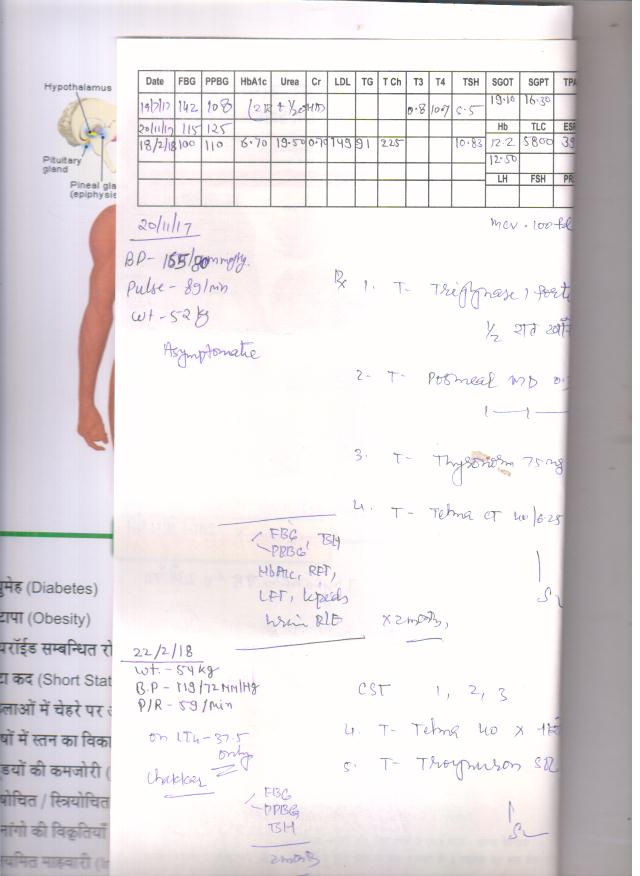 Hypothalamus
Pituitary
gland
Pineal gla
(epiphysis
Date FBG PPBG HbA1c Urea Cr LDL TG T Ch T3 T4 TSH SGOT SGPT TPA
19/7/17 142 108 0.8 10.7 19.10 16.30
20/11/17 115 125 Hb TLC ESR
18/2/18 100 110 6.70 19.50 0.70 149 91 225 10.83 12.2 5800 39
12.50
LH FSH PR
20/11/17
MCV - 100 fl
BP - 155/90 mmHg.
Pulse - 89/min
Wt - 52 kg
Asymptomatic
Rx 1. T- Triglynase 1 forte
1/2
2. T- Posmeal MD 0.
3. T- Thyronorm 75 mg
4. T- Telma CT 40/6.25
FBG, TSH
PPBG
HbA1c, RFT,
LFT, Lipids
Urine R/E x 2 months,
22/2/18
Wt. - 54 kg
B.P - 119/72 MM/Hg
P/R - 59/min
CST 1, 2, 3
on LT4 - 37.5
only
Chakkar
4. T- Telma 40 x
5. T- SR
FBG
PPBG
TSH
2 months
ुमेह (Diabetes)
टापा (Obesity)
यरॉईड सम्बन्धित रो
टा कद (Short Stat
लाओं में चेहरे पर
षों में स्तन का विका
डियों की कमजोरी (
षोचित / स्त्रियोचित
नांगो की विकृतियाँ
यमित माहवारी (Ir